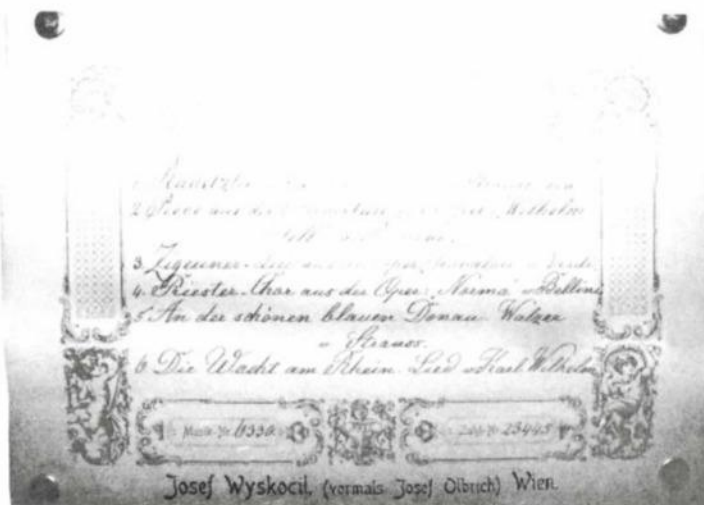 1. Radetzky
2. Piece aus der Wilhelm
Tell
3. Zigeuner- aus der Oper v. Verdi
4. Priester-Chor aus der Oper: Norma v. Bellini
5. An der schönen blauen Donau. Walzer
v. Strauss.
6. Die Wacht am Rhein. Lied v. Karl Wilhelm
Musik-Nr. 6330 Zahl-Nr. 23445
Josef Wyskocil, (vormals Josef Olbrich) Wien.